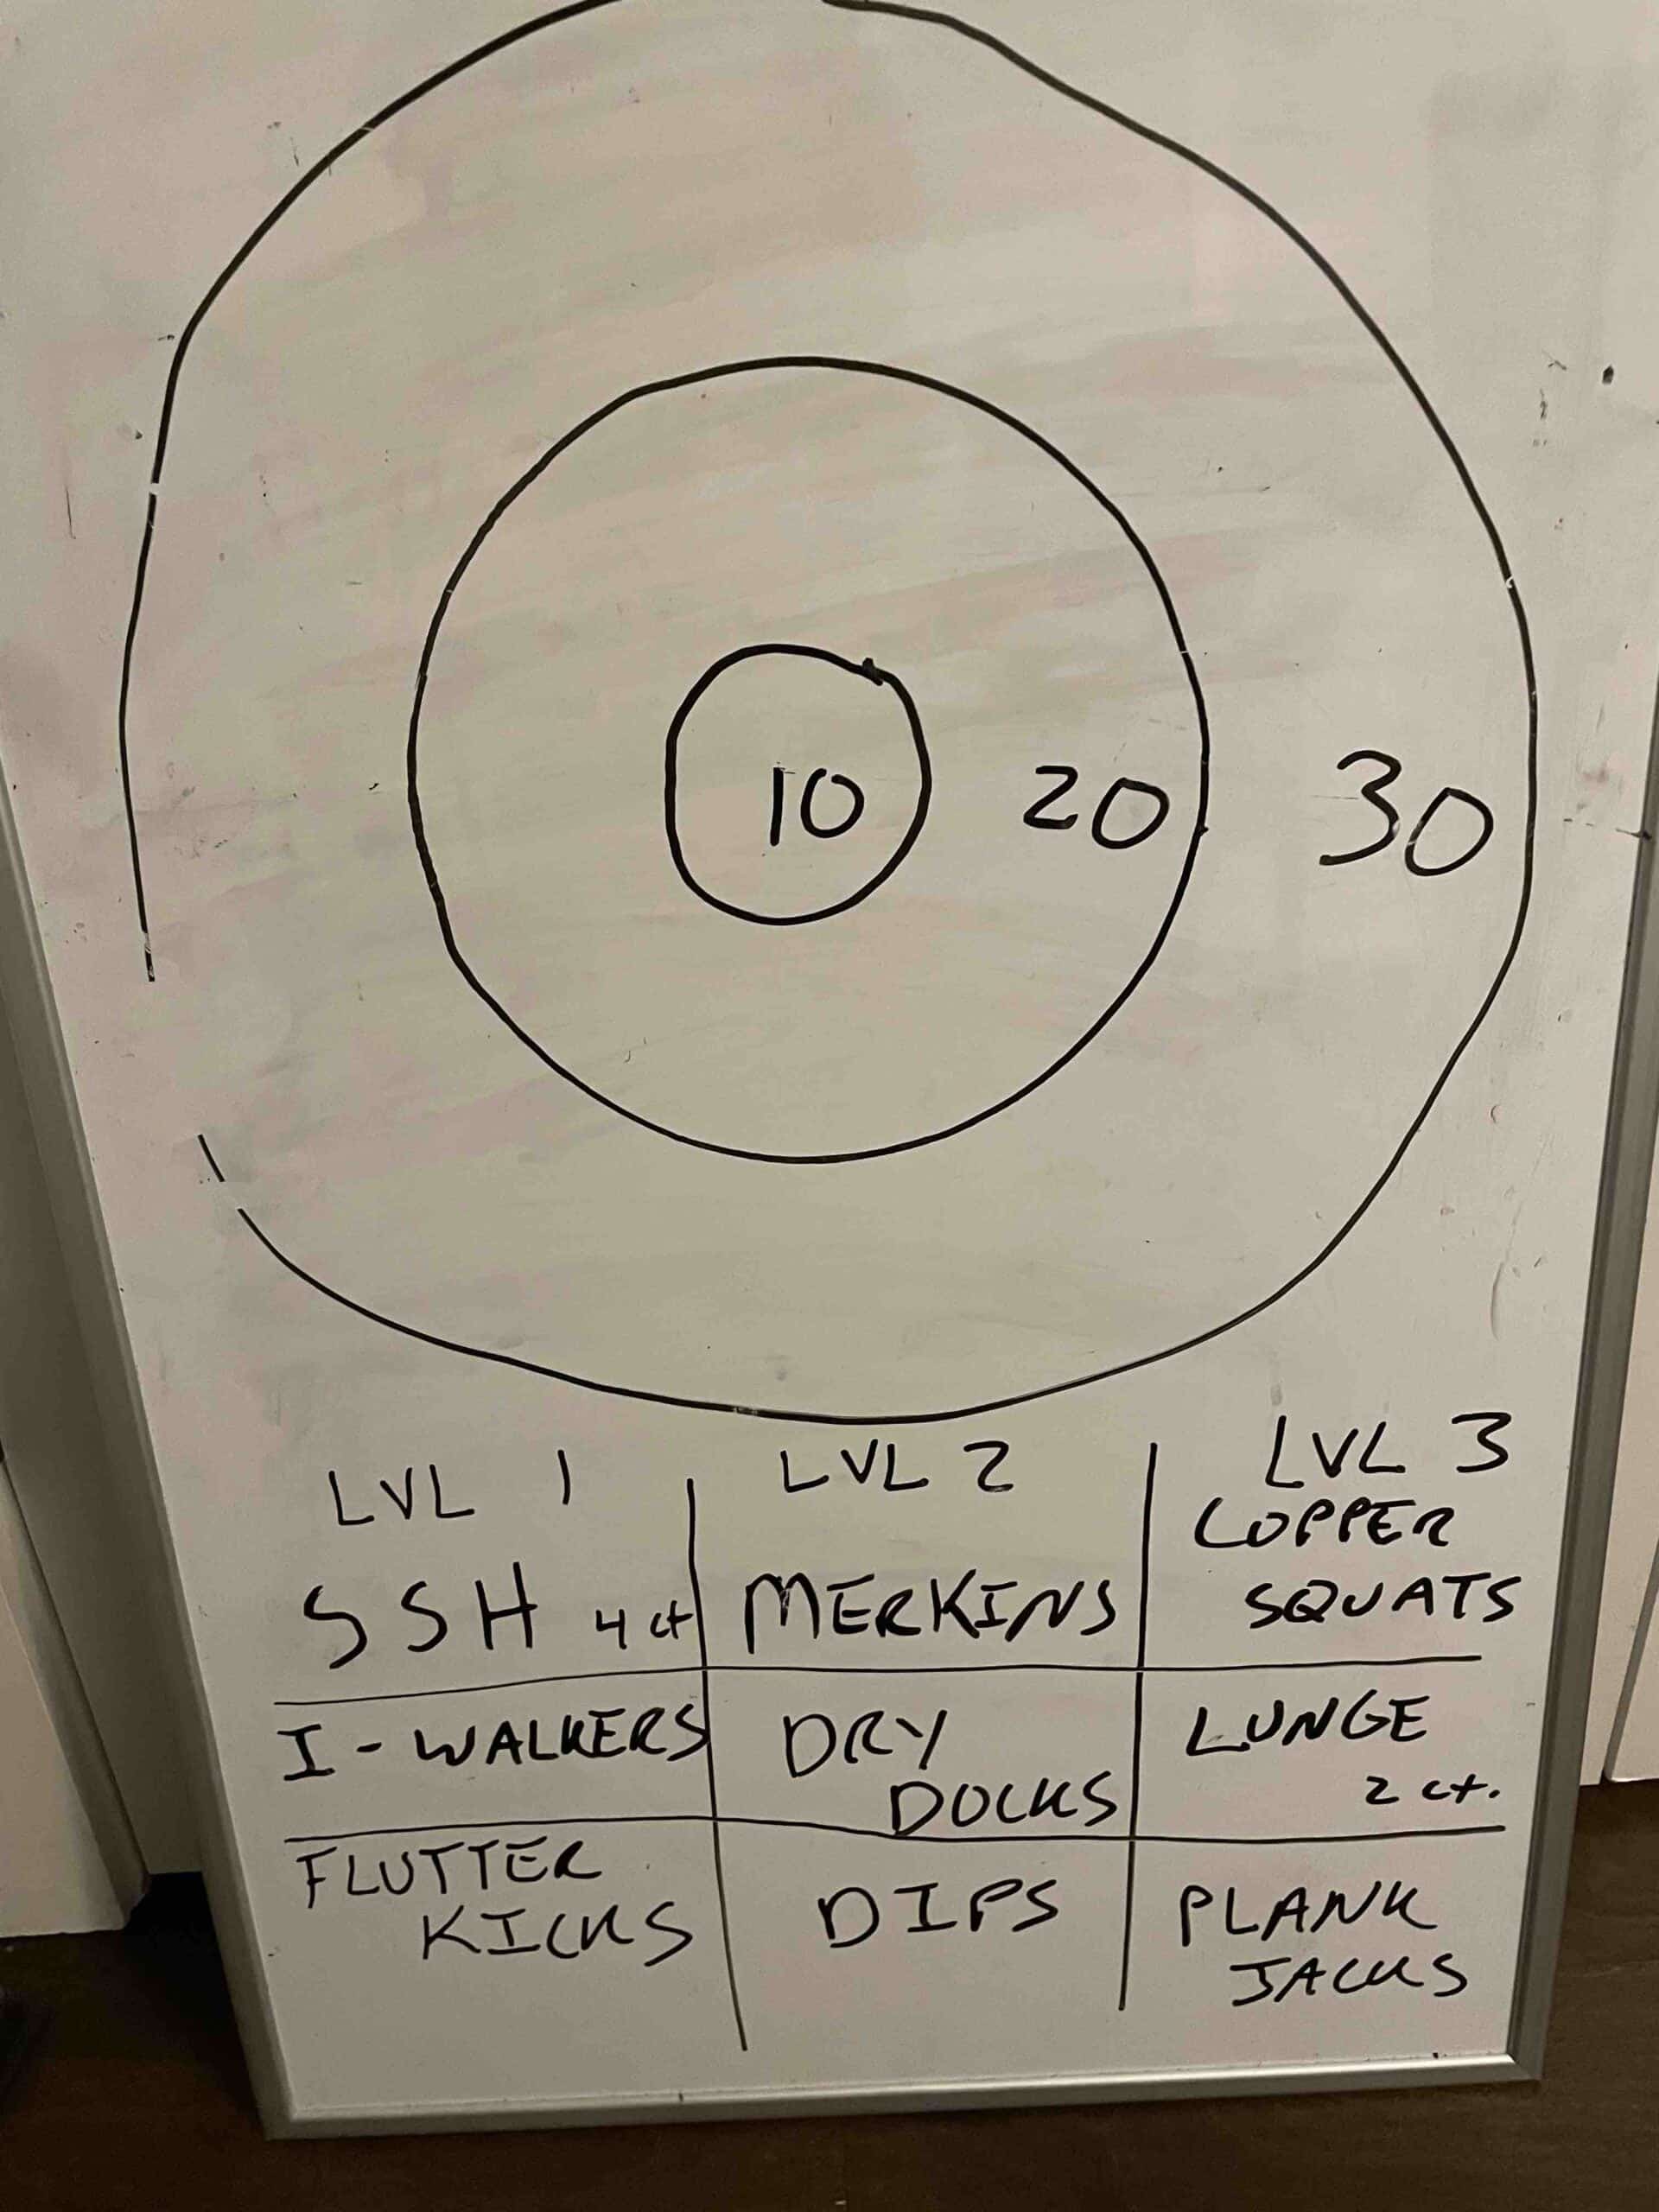 10 20 30
LVL 1
LVL 2
LVL 3
SSH 4 ct
MERKINS
COPPER
SQUATS
I - WALKERS
DRY
DOCKS
LUNGE
2 ct.
FLUTTER
KICKS
DIPS
PLANK
JACKS